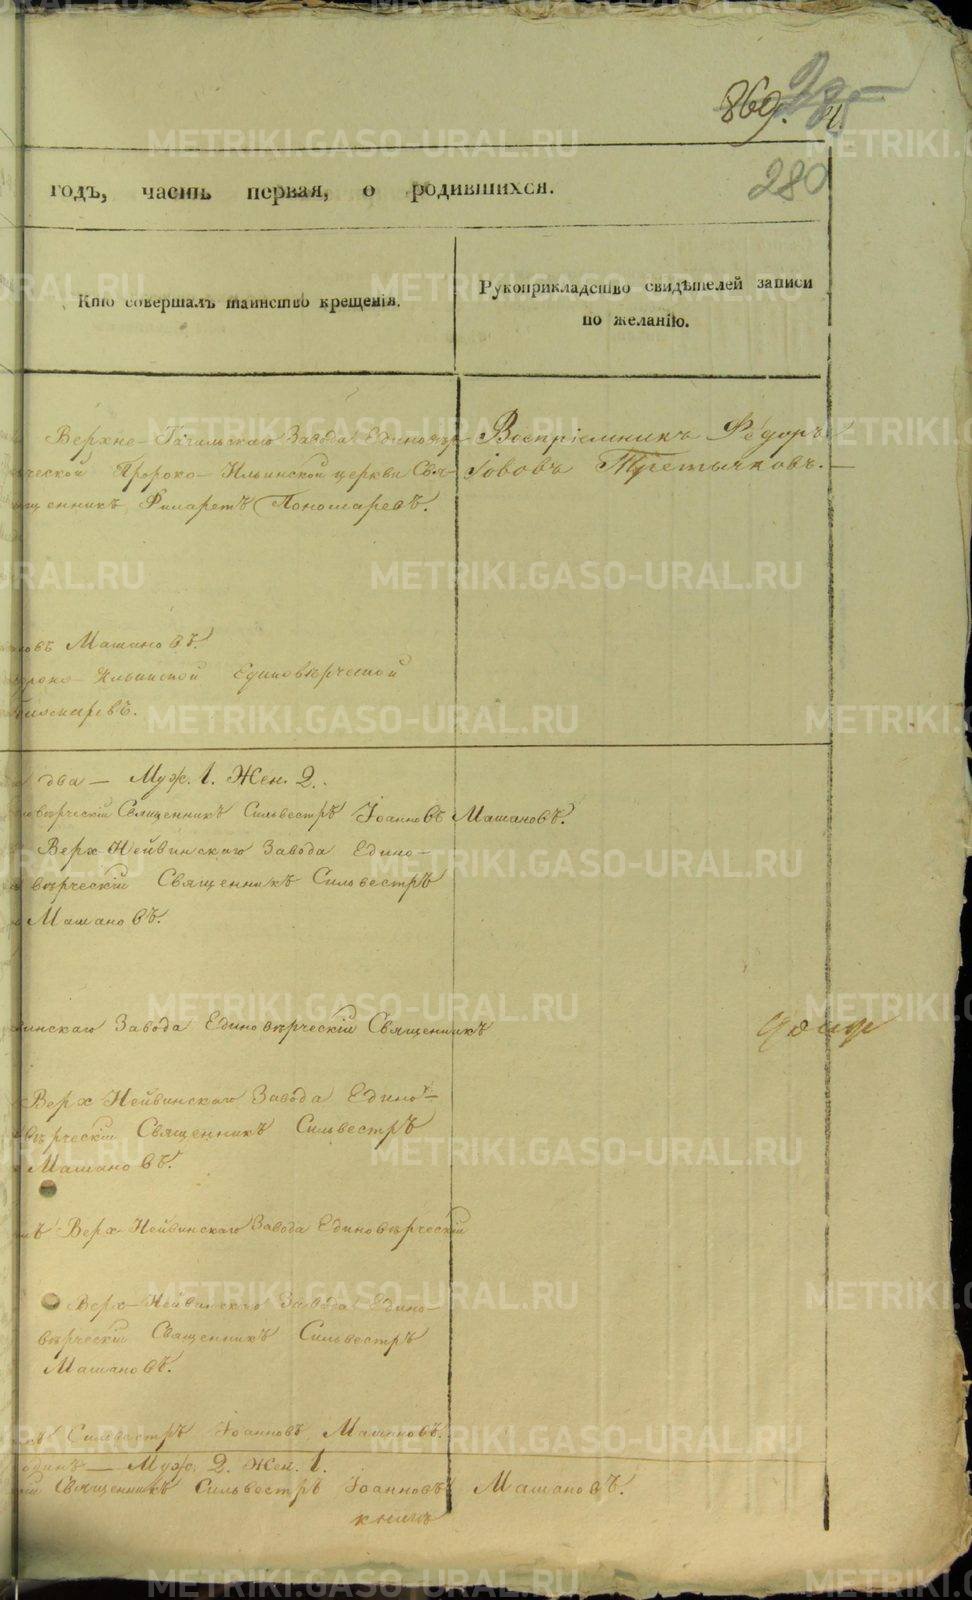 869.
280
годъ, часть первая, о родившихся.
Кто совершалъ таинство крещенія.
Рукоприкладство свидѣтелей записи
по желанію.
Верхне-Тагильскаго Завода Единовѣр
ческой Пророко-Ильинской церкви Свя-
щенникъ Филаретъ Пономаревъ.
Воспріемникъ Ѳедоръ
Іововъ Третьяковъ.
овъ Машановъ.
роко-Ильинской Единовѣрческой
два — Муж. 1. Жен. 2.
новѣрческій Священникъ Сильвестръ Іоанновъ Машановъ.
Верх-Нейвинскаго Завода Едино-
вѣрческій Священникъ Сильвестръ
Машановъ.
винскаго Завода Единовѣрческій Священникъ
Верх Нейвинскаго Завода Едино-
вѣрческій Священникъ Сильвестръ
Машановъ.
Верх-Нейвинскаго Завода Единовѣрческій
Верх-Нейвинскаго Завода Едино-
вѣрческій Священникъ Сильвестръ
Машановъ.
Сильвестръ Іоанновъ Машановъ.
одинъ — Муж. 2. Жен. 1.
Священникъ Сильвестръ Іоанновъ Машановъ.
METRIKI.GASO-URAL.RU